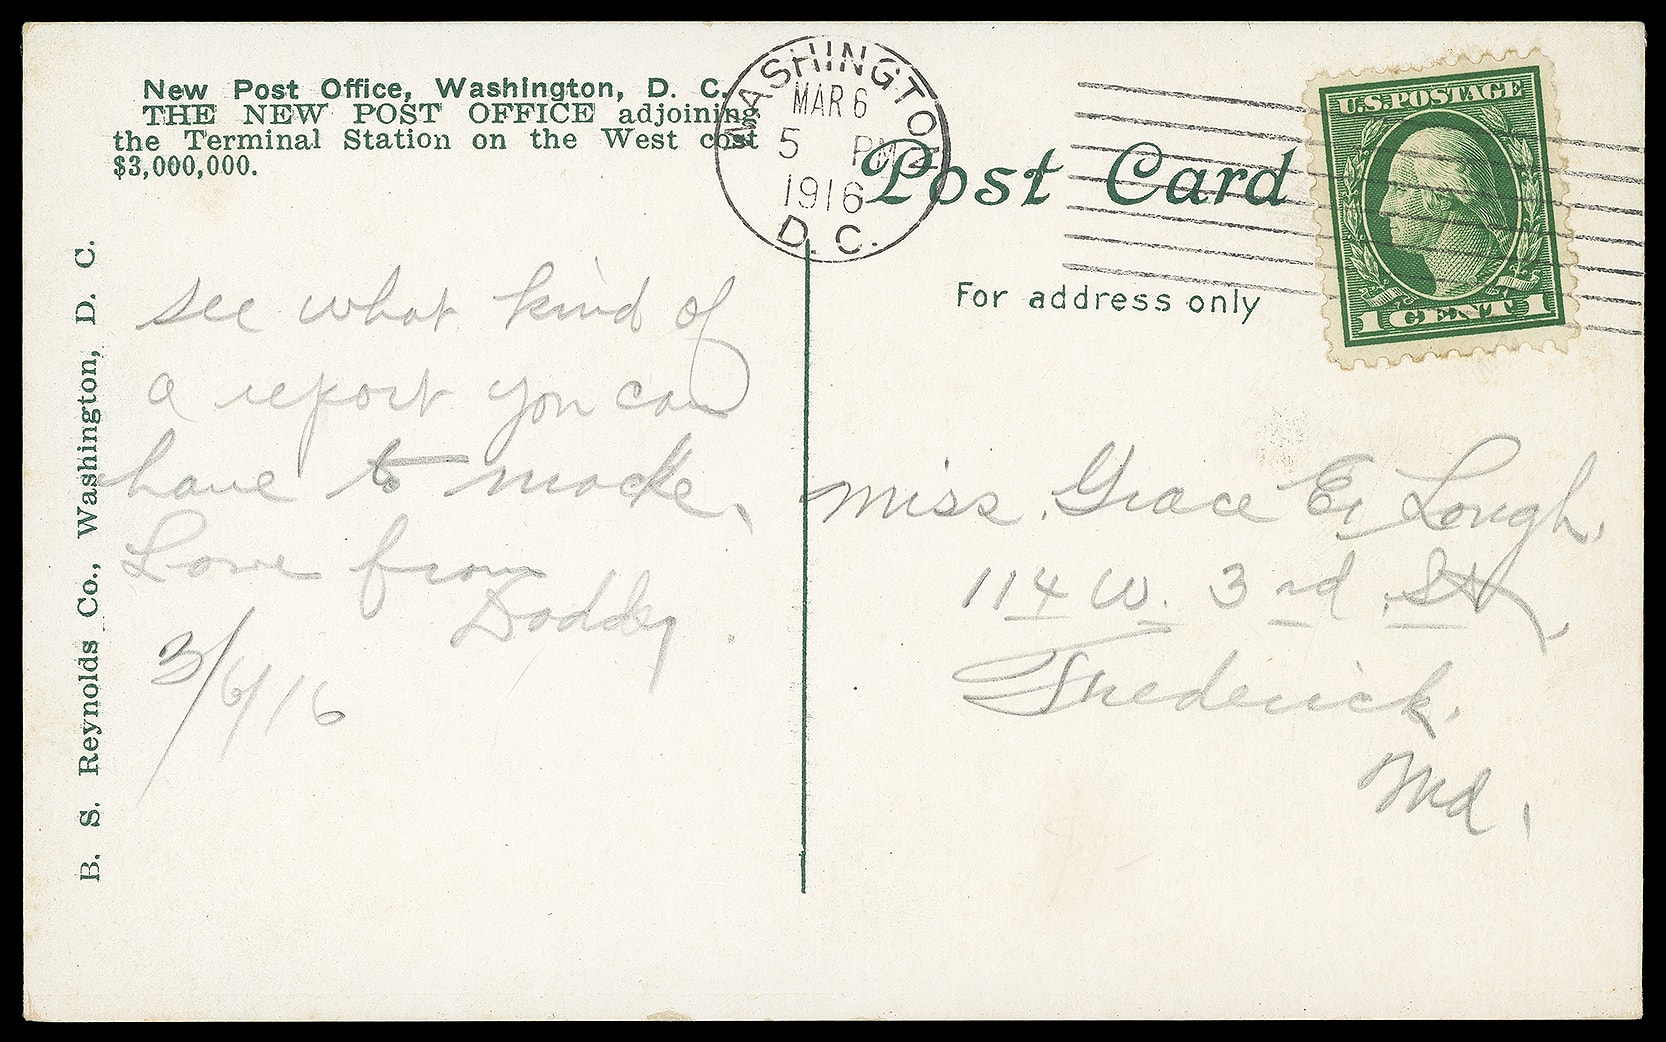 New Post Office, Washington, D. C.
THE NEW POST OFFICE adjoining
the Terminal Station on the West cost
$3,000,000.
B. S. Reynolds Co., Washington, D. C.
WASHINGTON
MAR 6
5 PM
1916
D. C.
Post Card
For address only
U.S. POSTAGE
1 CENT 1
see what kind of
a report you can
have to make.
Love from
Daddy
3/6/16
Miss. Grace E. Lough,
114 W. 3rd St,
Frederick.
Md.